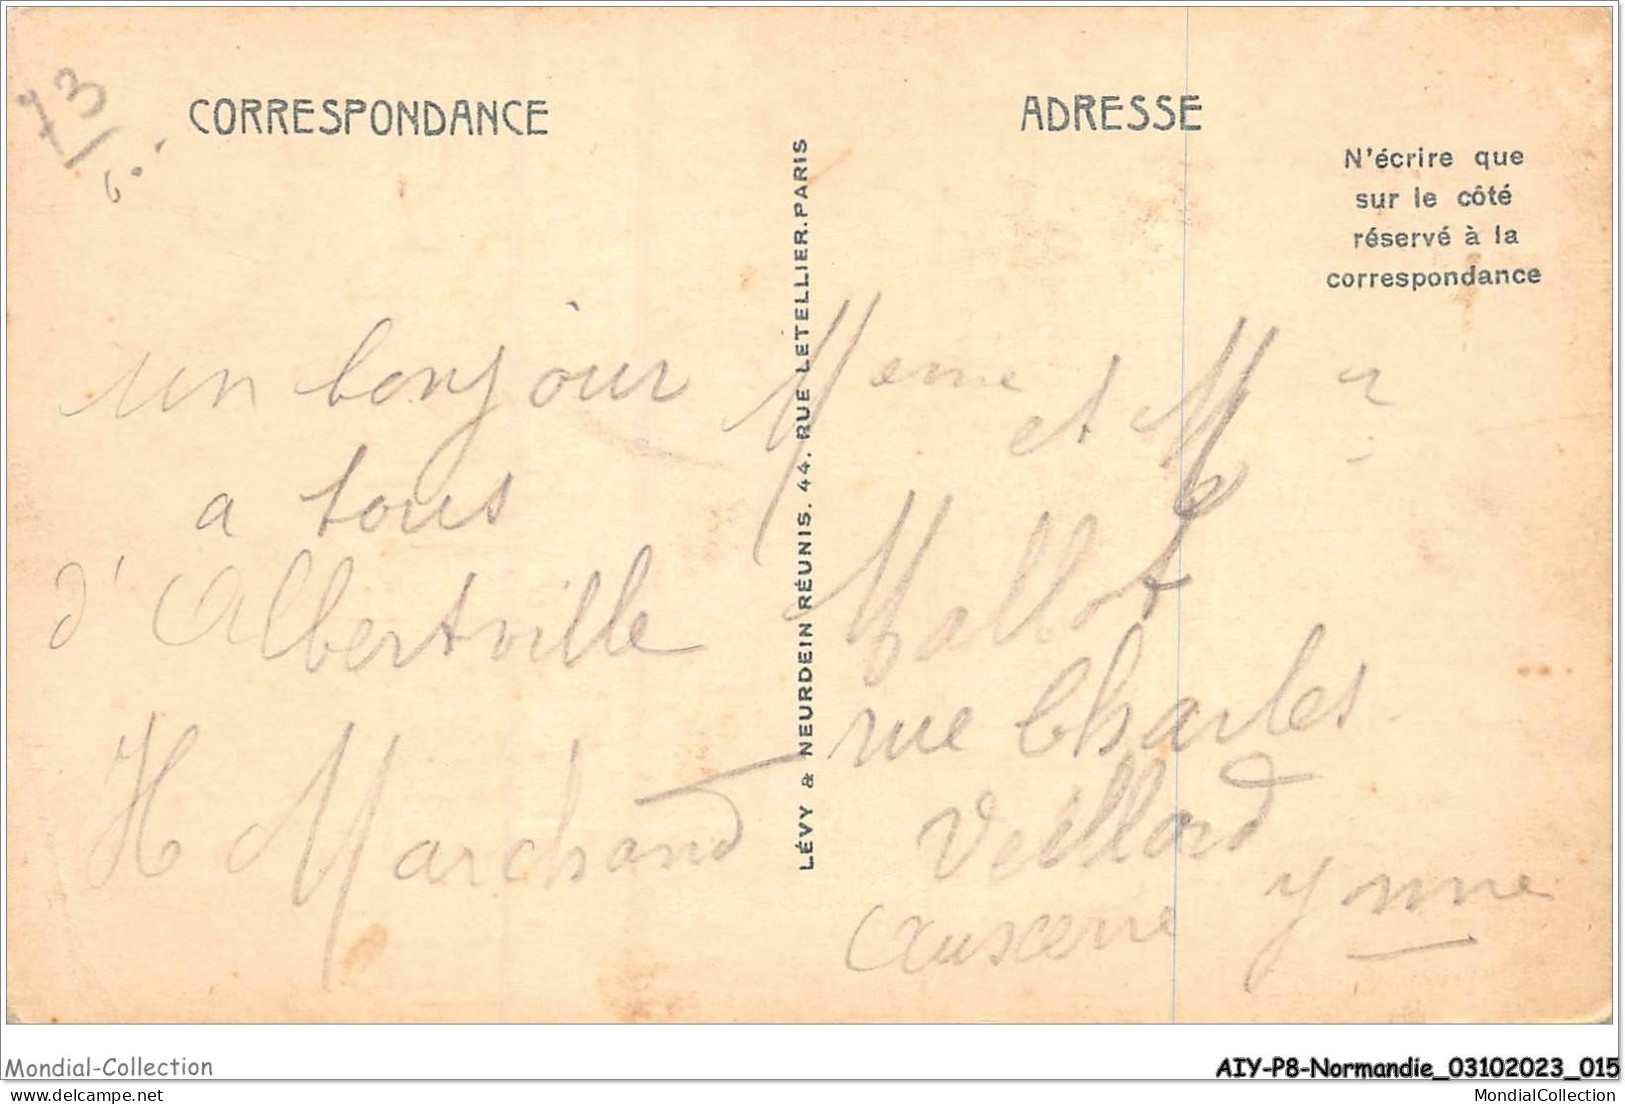 73
CORRESPONDANCE
un bonjour
a tous
d'Albertville
H Marchand
LÉVY & NEURDEIN RÉUNIS. 44. RUE LETELLIER. PARIS
ADRESSE
N'écrire que
sur le côté
réservé à la
correspondance
Meme et Mr
Mallot
rue Charles
Veillard
Auxerre Yonne
Mondial-Collection
AIY-P8-Normandie_03102023_015
www.delcampe.net
MondialCollection